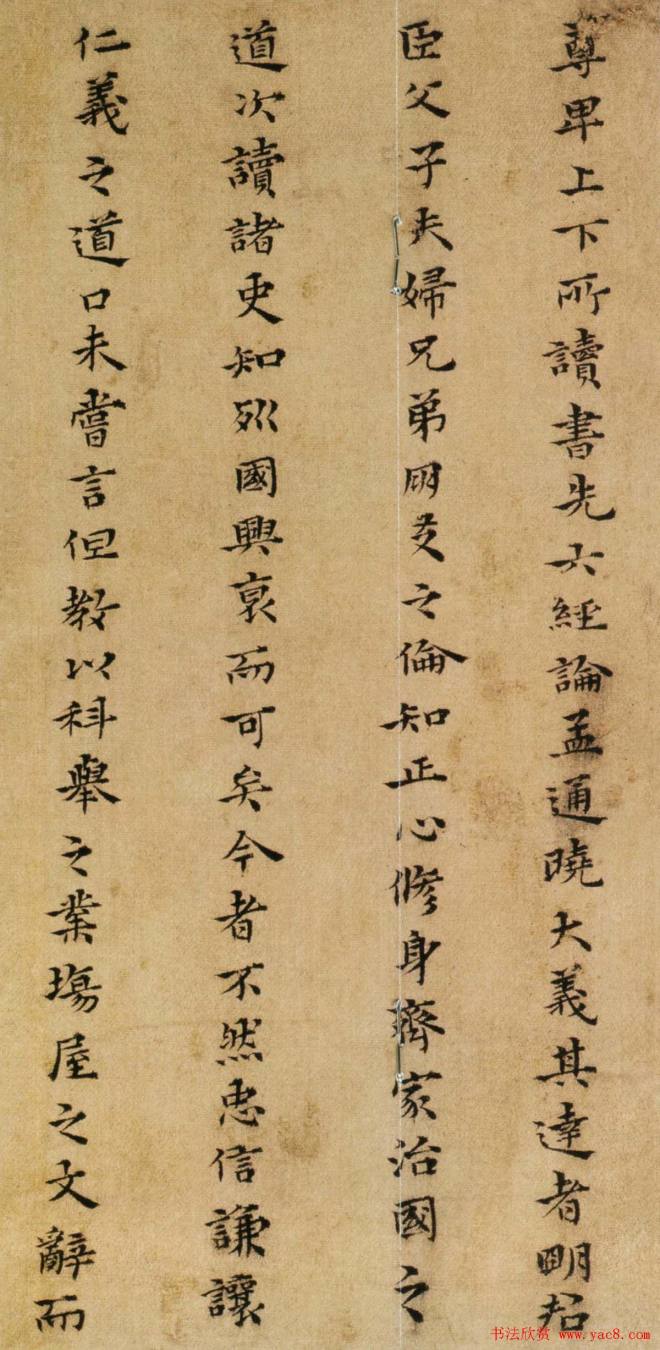 尊卑上下所讀書先六經論孟通曉大義其達者明君
臣父子夫婦兄弟朋友之倫知正心脩身齊家治國之
道次讀諸史知列國興衰而可矣今者不然忠信謙讓
仁義之道口未嘗言但教以科舉之業場屋之文辭而
书法欣赏 www.yac8.com